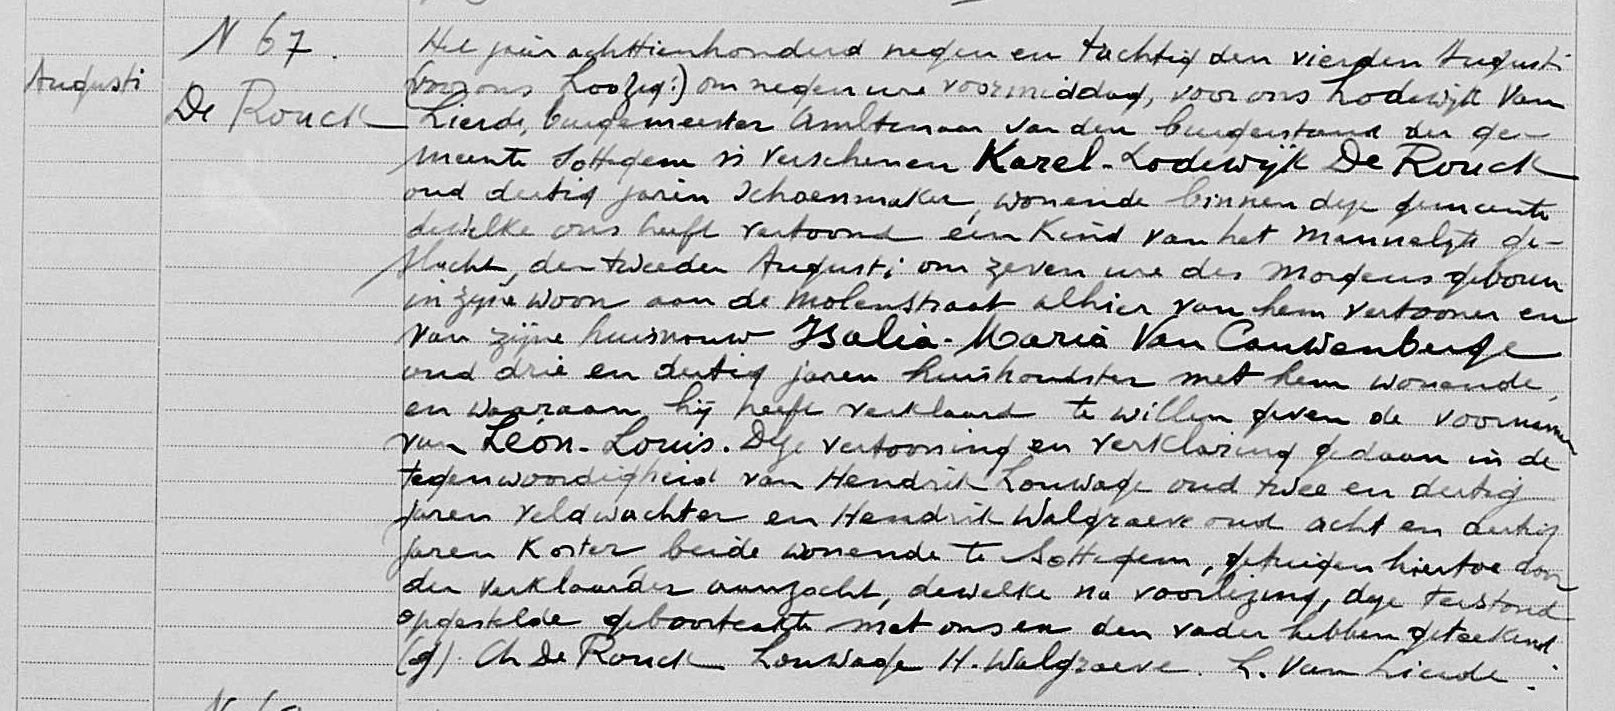 N 67.
Augusti
De Rouck
Het jaar achttienhonderd negen en tachtig den vierden Augusti
(voor ons Lod zeg:) om negen ure voormiddag, voor ons Lodewijk Van
Lierde, burgemeester Ambtenaar van den burgerstand der ge-
meente Sottegem is verschenen Karel-Lodewijk De Rouck
oud dertig jaren schoenmaker, wonende binnen deze gemeente
dewelke ons heeft vertoond een Kind van het mannelijk ge-
slacht, den tweeden Augusti om zeven ure des morgens geboren
in zijne woon aan de Molenstraat alhier van hem vertooner en
van zijne huisvrouw Isalia-Maria Van Cauwenberge
oud drie en dertig jaren huishoudster met hem wonende,
en waaraan hij heeft verklaard te willen geven de voornamen
van Léon-Louis. Deze vertooning en verklaring gedaan in de
tegenwoordigheid van Hendrik Louwage oud twee en dertig
jaren veldwachter en Hendrik Walgraeve oud acht en dertig
jaren Koster beide wonende te Sottegem, getuigen hiertoe door
den verklaarder aanzocht, dewelke na voorlezing, deze terstond
opgestelde geboorteakte met ons en den vader hebben geteekend.
(g). Ch De Rouck Louwage H. Walgraeve. L. Van Lierde.